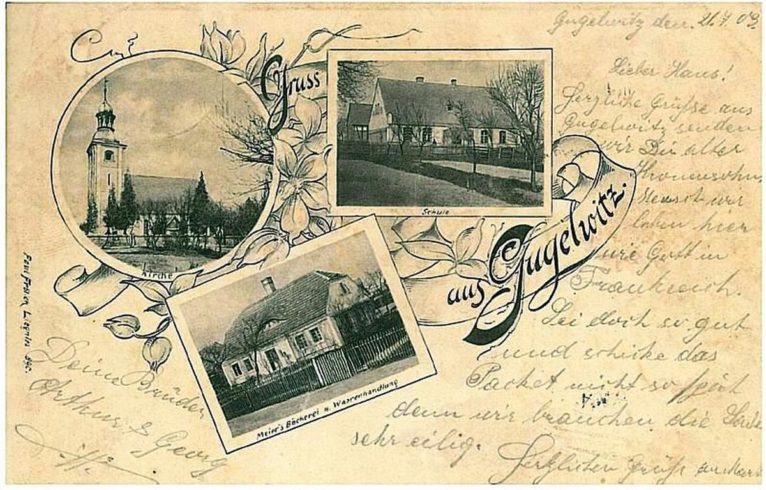 Gruss
aus Gugelwitz.
Kirche
Schule
Meier's Bäckerei u. Warenhandlung
Gugelwitz den 21.7.03
Lieber Hans!
Herzliche Grüße aus
Gugelwitz senden
wir Dir alter
Kronensohn,
Mensch wir
leben hier
wie Gott in
Frankreich.
Sei doch so gut
und schicke das
Packet nicht so spät
denn wir brauchen die
sehr eilig.
Herzlichen Gruß
Deine Brüder
Arthur & Georg
Liegnitz